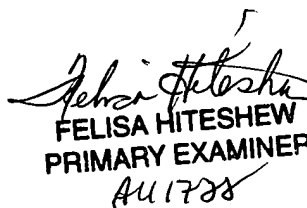 Felisa Hiteshew
FELISA HITESHEW
PRIMARY EXAMINER
AU